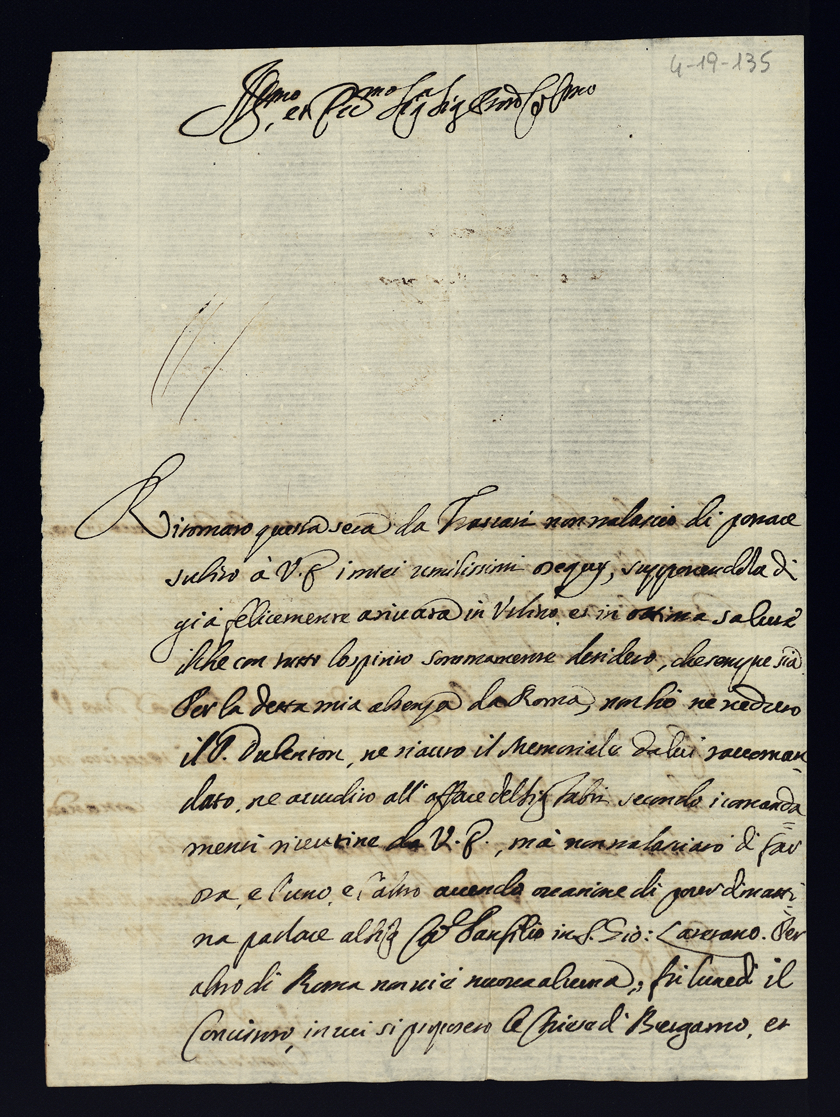 4-19-135
Ill.mo et Rev.mo Sig.r Sig.r Pron Col.mo
Ritornato questa sera da Frascati non tralascio di portare
subito à V.S. i miei umilissimi ossequij, supponendola di
già felicemente arivata in Urbino, et in ottima salute
ilche con tutto lo spirito sommamente desidero, che sempre sia.
Per la detta mia absenza da Roma, non hò ne veduto
il P. Dubenton, ne riauto il Memoriale da lui raccoman-
dato, ne accudito all'affare del Sig. Fabri secondo i comanda=
menti ricevutine da V.S., mà non tralasciarò di far
ora, e l'uno, e l'altro avendo occasione di poter dimatti=
na parlare al Sig. Card Panfilio in S. Gio: Laterano. Per
altro di Roma non vi è nuova alcuna, fù lunedì il
Concistoro, in cui si proposero le Chiese di Bergamo, et